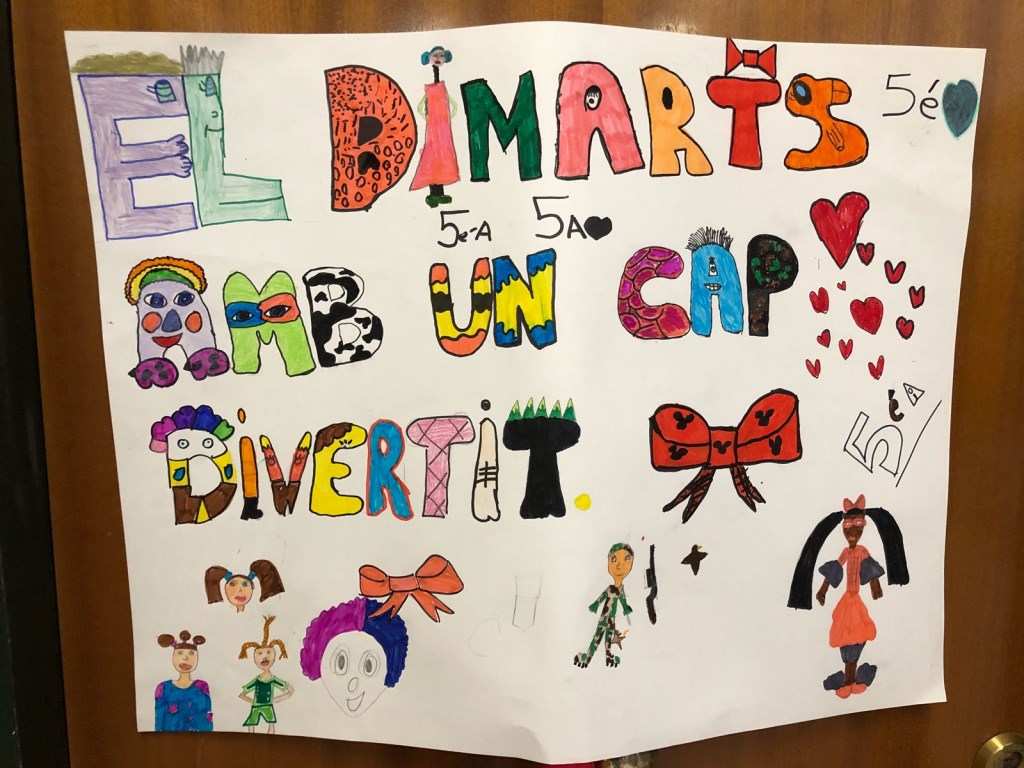 EL DIMARTS 5é
5e-A 5A
AMB UN CAP
DIVERTIT.
5é A